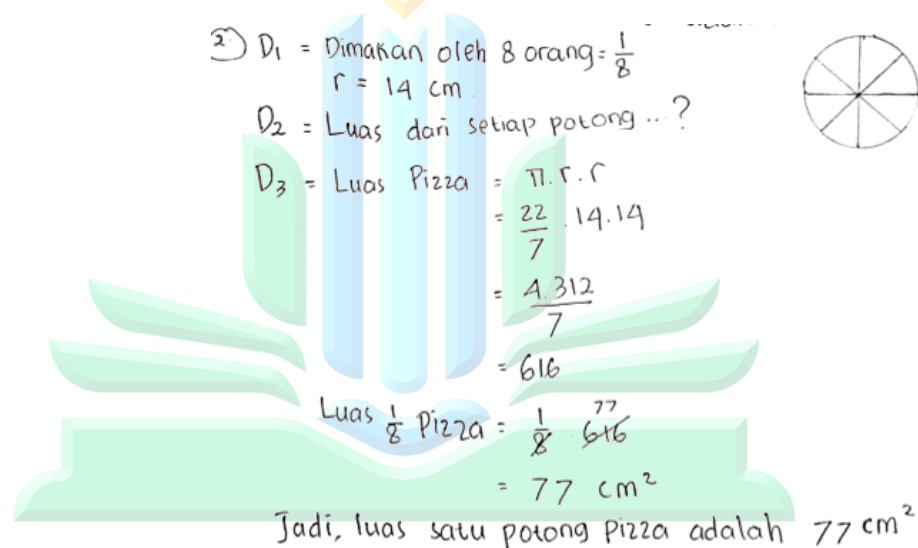 2. D1 = Dimakan oleh 8 orang = 1/8
r = 14 cm
D2 = Luas dari setiap potong...?
D3 = Luas Pizza = π.r.r
= 22/7 . 14.14
= 4.312/7
= 616
77
Luas 1/8 Pizza = 1/8 616
= 77 cm²
Jadi, luas satu potong Pizza adalah 77 cm²